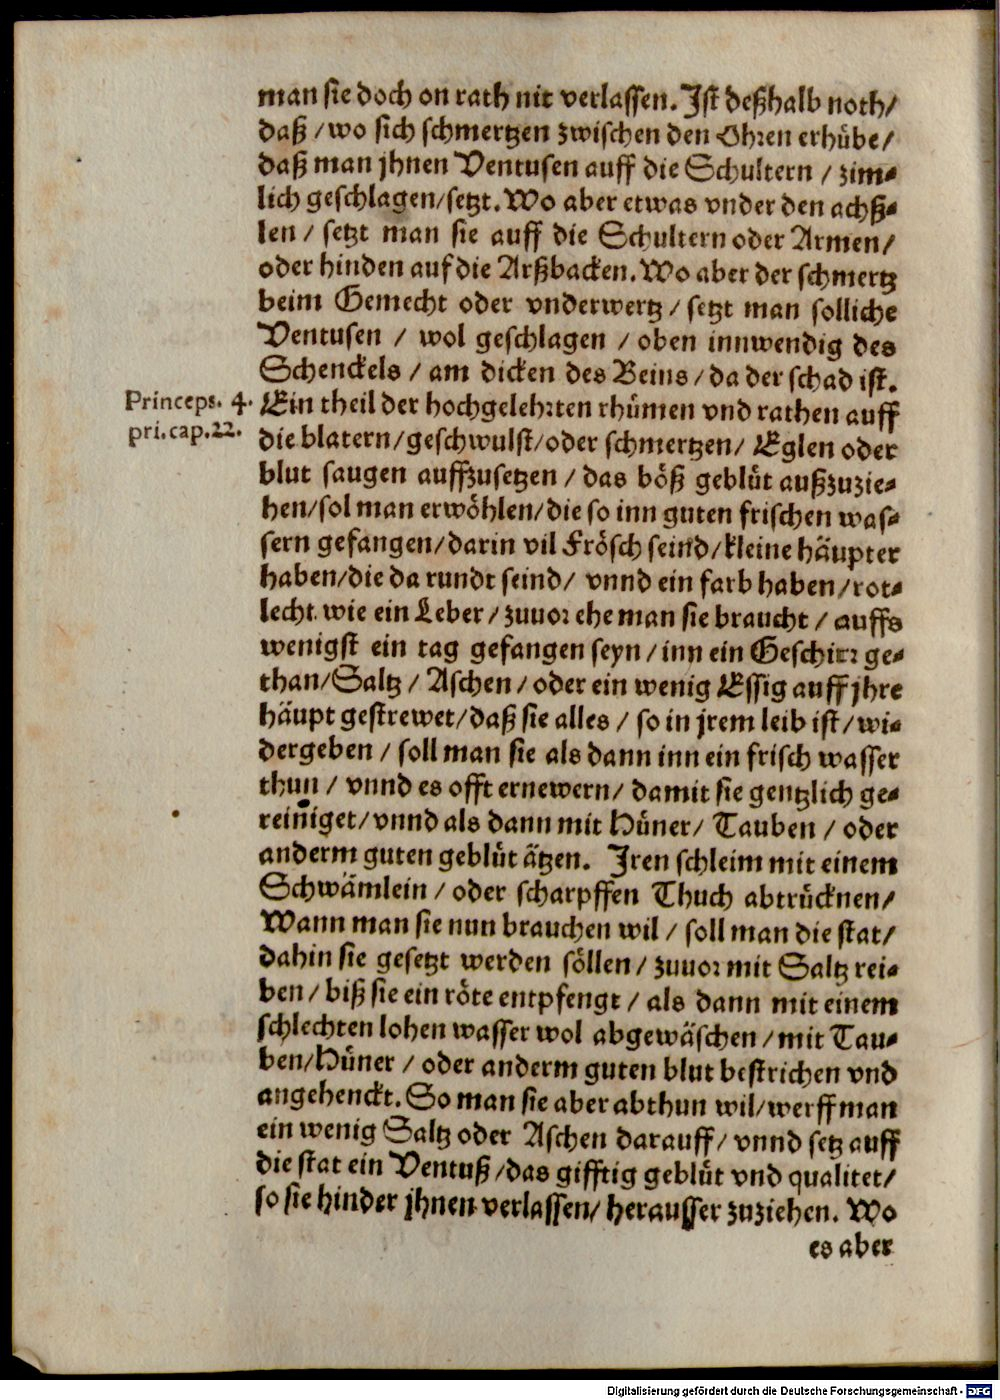 man sie doch on rath nit verlassen. Jst deßhalb noth/
daß / wo sich schmertzen zwischen den Ohren erhübe/
daß man jhnen Ventusen auff die Schultern / zim-
lich geschlagen/setzt. Wo aber etwas vnder den achß-
len / setzt man sie auff die Schultern oder Armen/
oder hinden auf die Arßbacken. Wo aber der schmertz
beim Gemecht oder vnderwertz / setzt man solliche
Ventusen / wol geschlagen / oben innwendig des
Schenckels / am dicken des Beins / da der schad ist.
Princeps. 4.
pri. cap. 22.
Ein theil der hochgelehrten rhümen vnd rathen auff
die blatern/geschwulst/oder schmertzen/ Eglen oder
blut saugen auffzusetzen / das böß geblüt außzuzie-
hen/sol man erwöhlen/die so inn guten frischen was-
sern gefangen/darin vil Frösch seind/kleine häupter
haben/die da rundt seind/ vnnd ein farb haben/rot-
lecht wie ein Leber / zuuor ehe man sie braucht / auffs
wenigst ein tag gefangen seyn / inn ein Geschirr ge-
than/Saltz / Aschen / oder ein wenig Essig auff jhre
häupt gestrewet/daß sie alles / so in jrem leib ist/wi-
dergeben / soll man sie als dann inn ein frisch wasser
thun / vnnd es offt ernewern/ damit sie gentzlich ge-
reiniget/vnnd als dann mit Hüner/ Tauben / oder
anderm guten geblüt ätzen. Jren schleim mit einem
Schwämlein / oder scharpffen Thuch abtrücknen/
Wann man sie nun brauchen wil / soll man die stat/
dahin sie gesetzt werden söllen / zuuor mit Saltz rei-
ben / biß sie ein röte entpfengt / als dann mit einem
schlechten lohen wasser wol abgewäschen / mit Tau-
ben/Hüner / oder anderm guten blut bestrichen vnd
angehenckt. So man sie aber abthun wil/werff man
ein wenig Saltz oder Aschen darauff/ vnnd setz auff
die stat ein Ventuß /das gifftig geblüt vnd qualitet/
so sie hinder jhnen verlassen/ herausser zuziehen. Wo
es aber
Digitalisierung gefördert durch die Deutsche Forschungsgemeinschaft - DFG